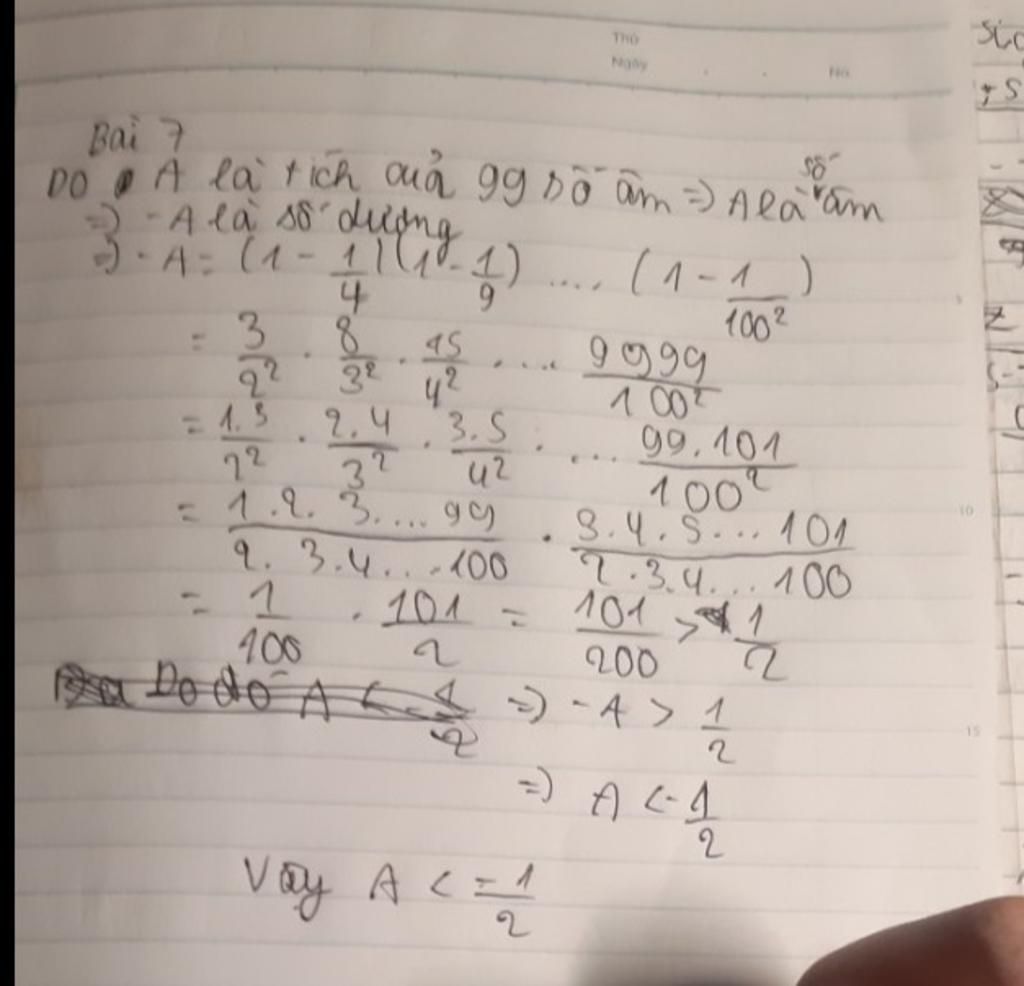 Thứ
Ngày . . No
Bài 7
Do A là tích cuả 99 số âm => A là số âm
=> -A là số dương
=> -A = (1 - 1/4)(1 - 1/9) .... (1 - 1/100²)
= 3/2² . 8/3² . 15/4² . ... 9999/100²
= 1.3/2² . 2.4/3² . 3.5/4² . ... 99.101/100²
= 1.2.3....99/2.3.4...100 . 3.4.5...101/2.3.4...100
= 1/100 . 101/2 = 101/200 > 1/2
Do đó A < -1/2 => -A > 1/2
=> A < -1/2
Vậy A < -1/2
10
15